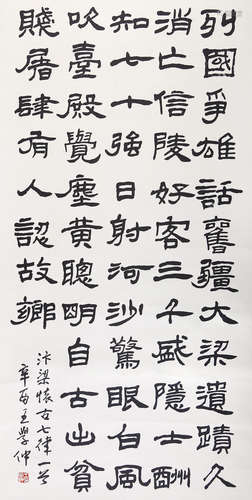 列國爭雄話舊疆大梁遺蹟久
消亡信陵好客三千盛隱士酬
知七十強日射河沙驚眼白風
吹臺殿覺塵黄聰明自古出貧
賤屠肆有人認故鄉
汴梁懷古七律一首
辛酉王學仲